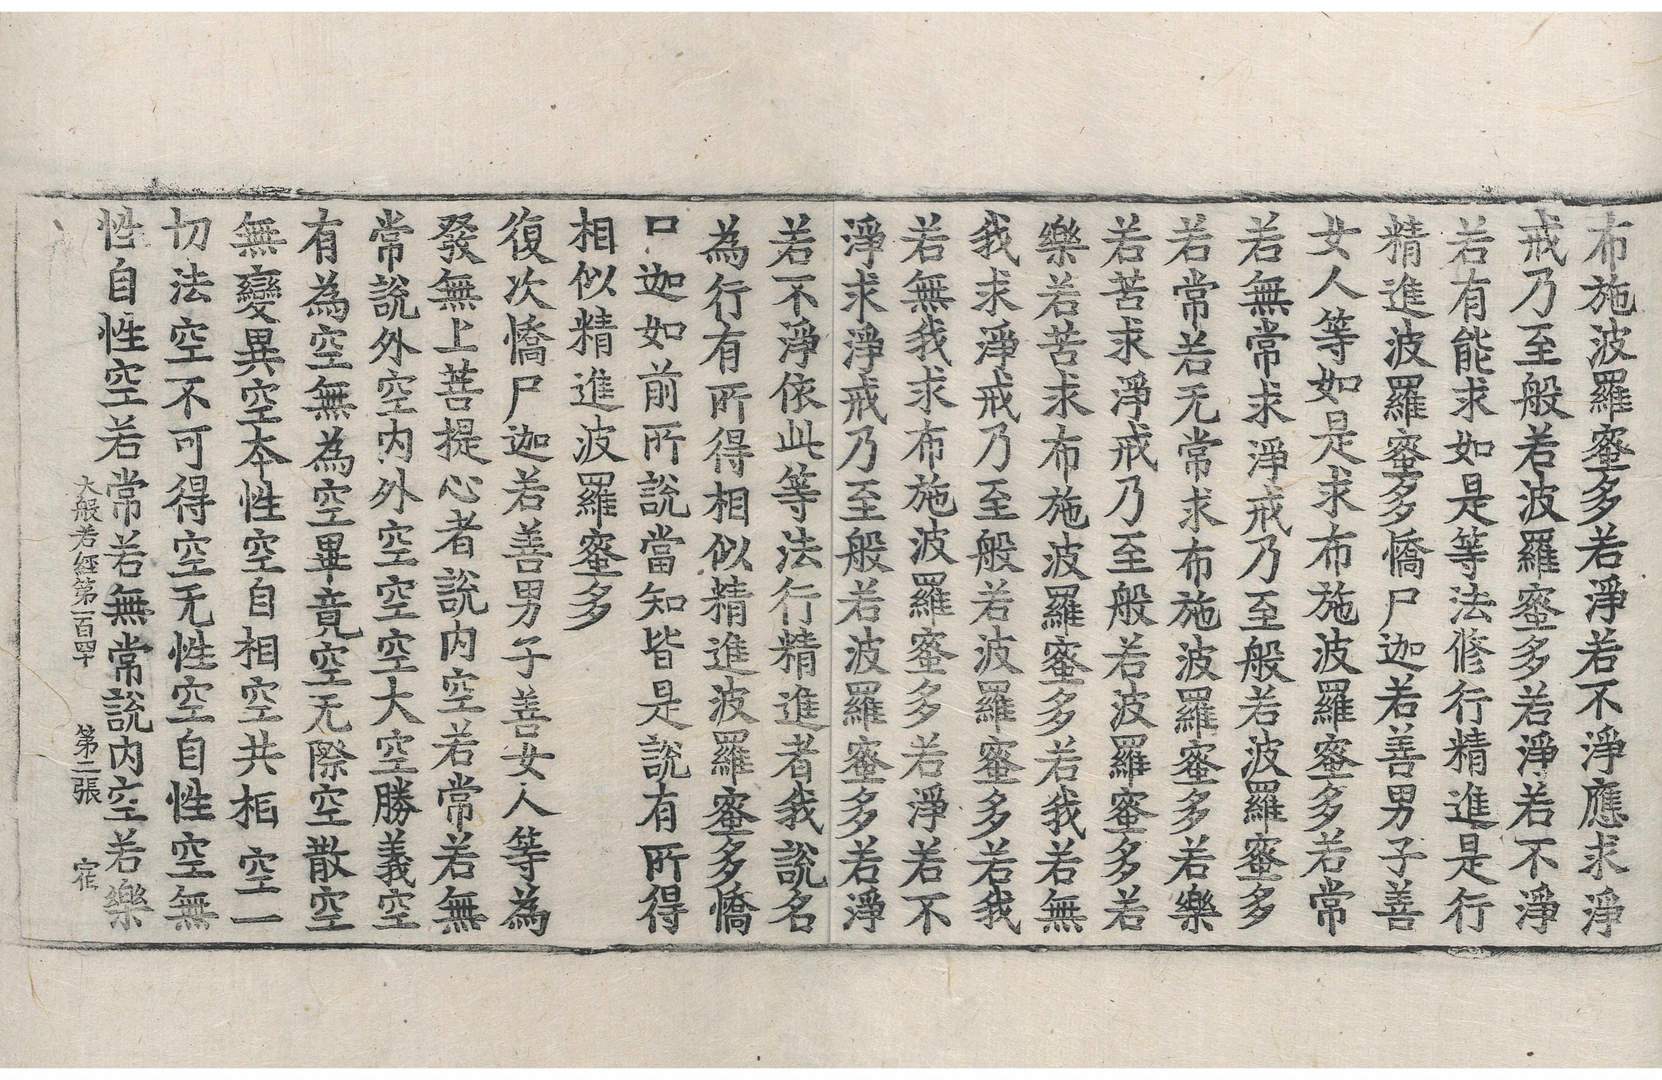 布施波羅蜜多若淨若不淨應求淨
戒乃至般若波羅蜜多若淨若不淨
若有能求如是等法修行精進是行
精進波羅蜜多憍尸迦若善男子善
女人等如是求布施波羅蜜多若常
若無常求淨戒乃至般若波羅蜜多
若常若无常求布施波羅蜜多若樂
若苦求淨戒乃至般若波羅蜜多若
樂若苦求布施波羅蜜多若我若無
我求淨戒乃至般若波羅蜜多若我
若無我求布施波羅蜜多若淨若不
淨求淨戒乃至般若波羅蜜多若淨
若不淨依此等法行精進者我說名
為行有所得相似精進波羅蜜多憍
尸迦如前所說當知皆是說有所得
相似精進波羅蜜多
復次憍尸迦若善男子善女人等為
發無上菩提心者說內空若常若無
常說外空內外空空空大空勝義空
有為空無為空畢竟空无際空散空
無變異空本性空自相空共相空一
切法空不可得空无性空自性空無
性自性空若常若無常說內空若樂
大般若經第一百四十 第二張 宿